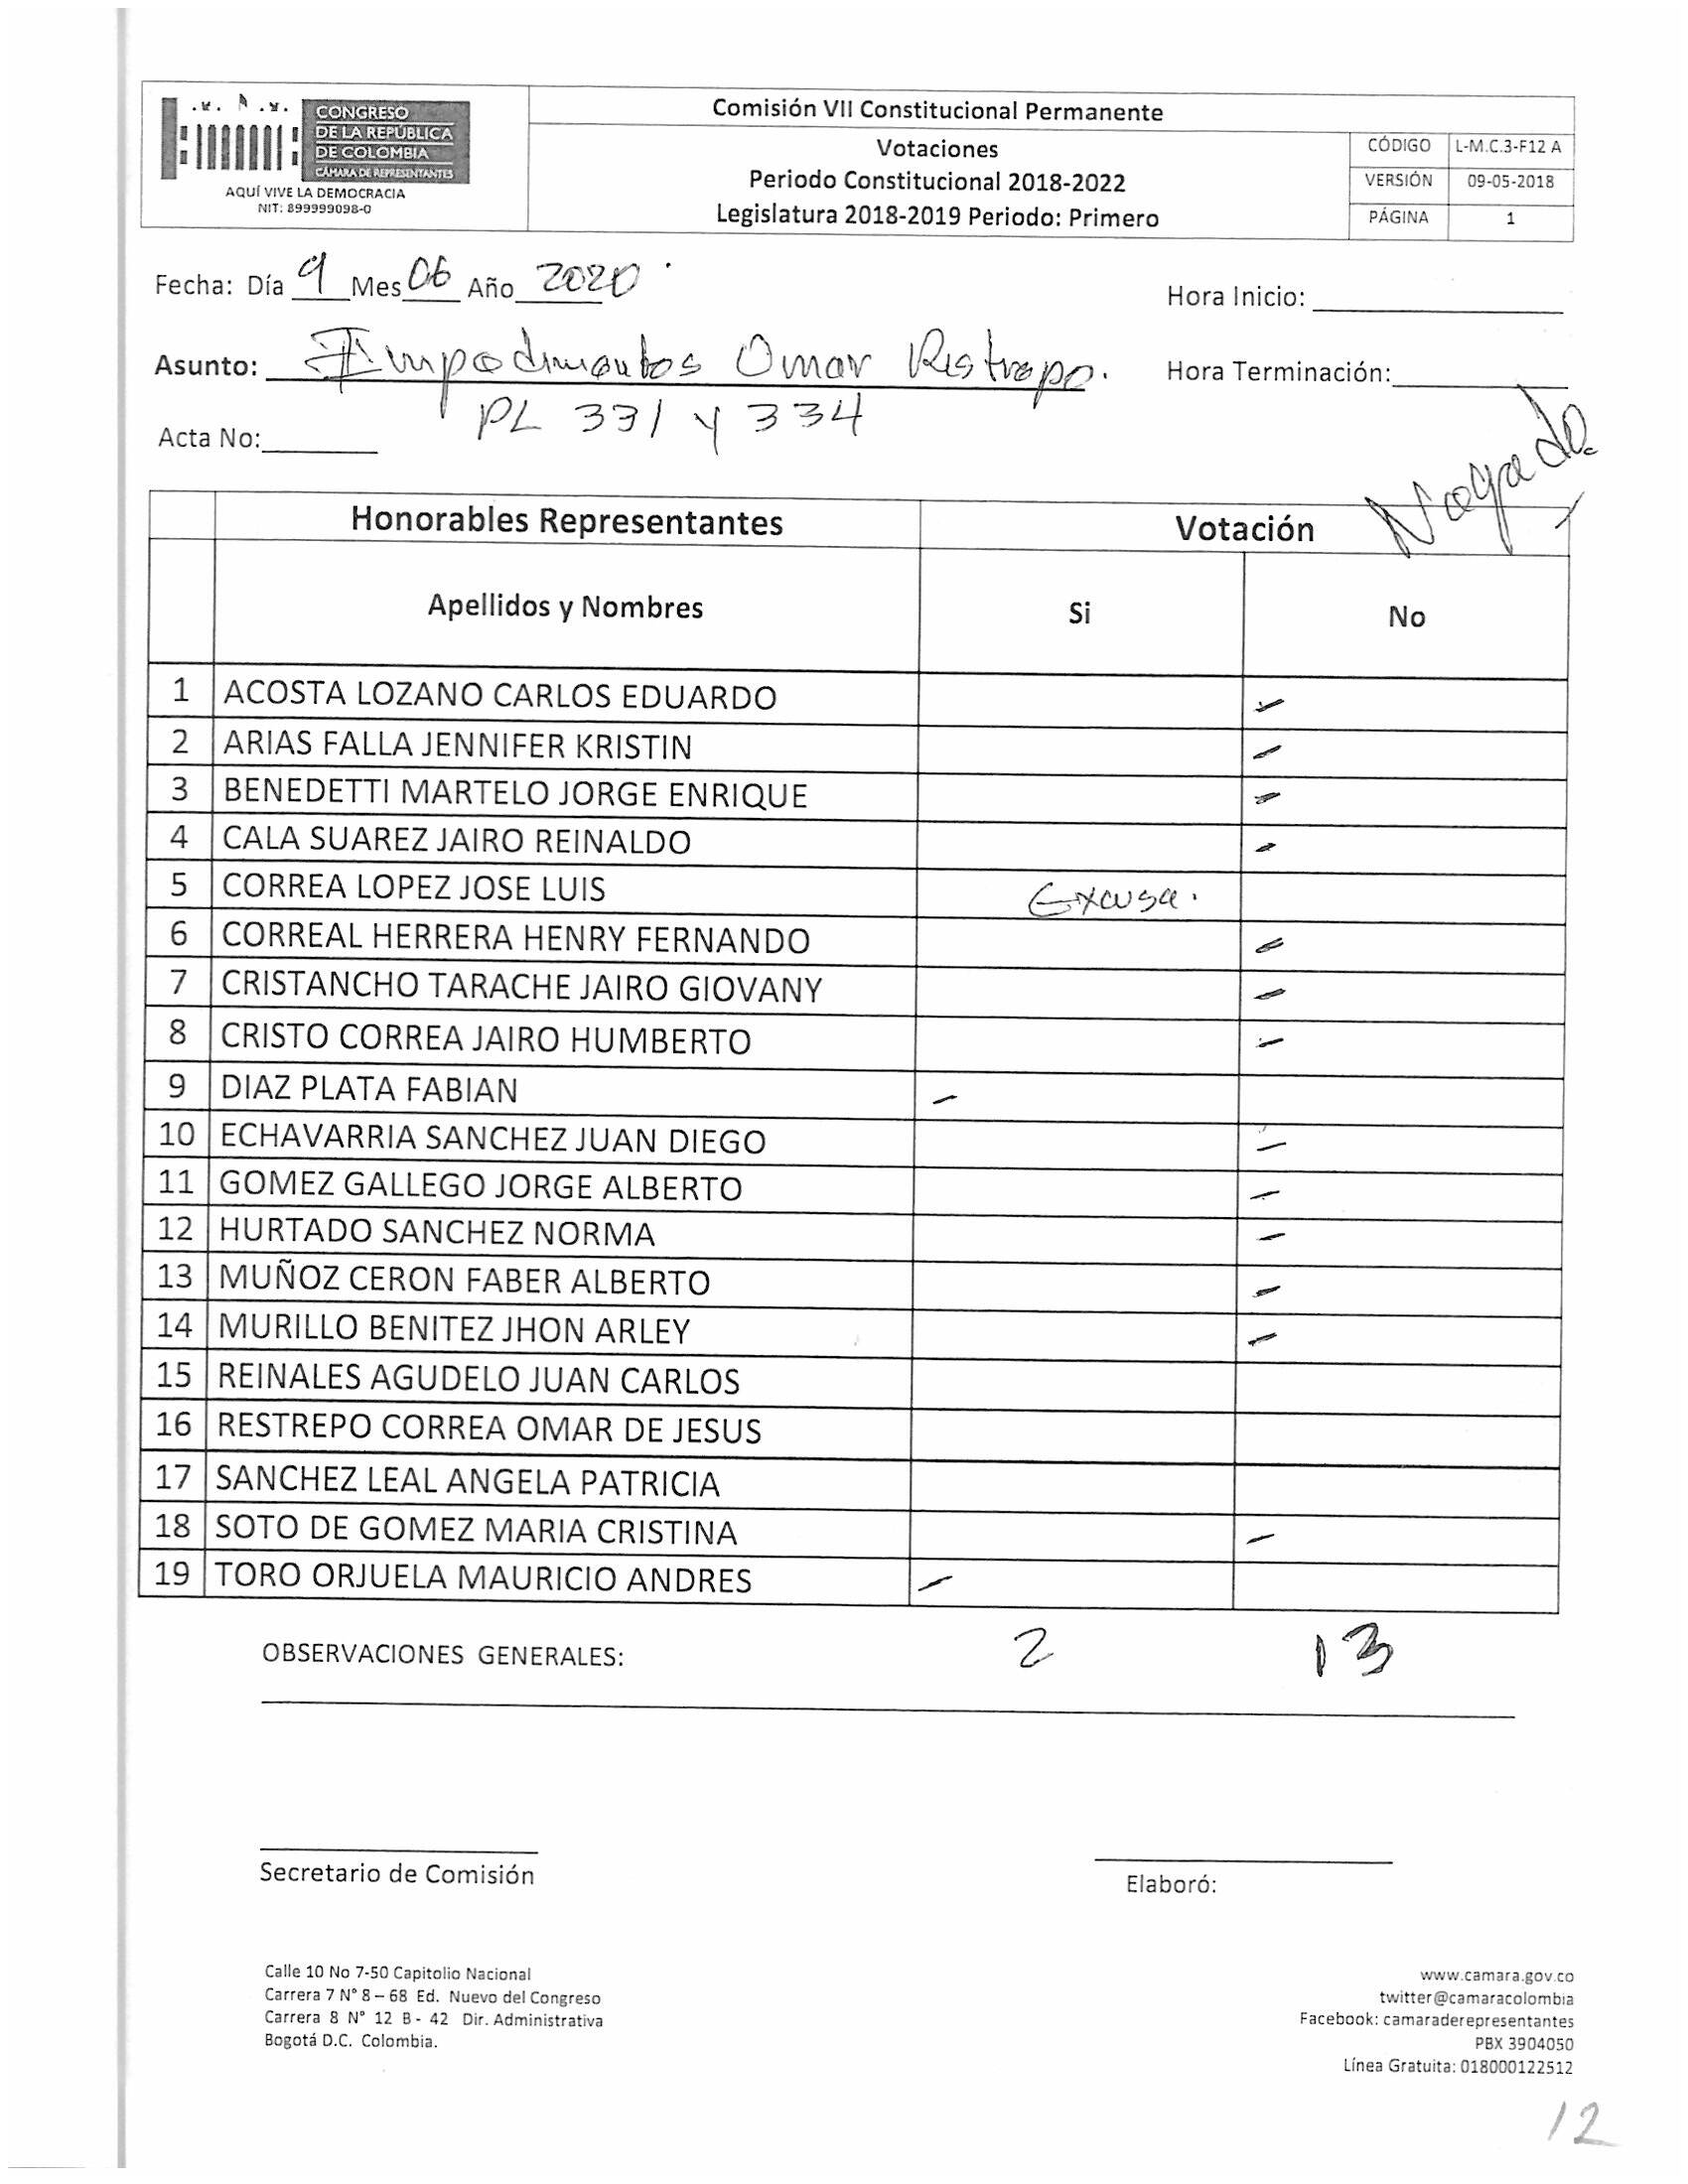 CONGRESO
DE LA REPÚBLICA
DE COLOMBIA
CÁMARA DE REPRESENTANTES
AQUÍ VIVE LA DEMOCRACIA
NIT: 899999098-0
Comisión VII Constitucional Permanente
Votaciones
Periodo Constitucional 2018-2022
Legislatura 2018-2019 Periodo: Primero
CÓDIGO L-M.C.3-F12 A
VERSIÓN 09-05-2018
PÁGINA 1
Fecha: Día 9 Mes 06 Año 2020
Hora Inicio:
Asunto: Impedimentos Omar Restrepo.
Hora Terminación:
PL 331 y 334
Acta No:
Negado.
Honorables Representantes Votación
Apellidos y Nombres Si No
1 ACOSTA LOZANO CARLOS EDUARDO
2 ARIAS FALLA JENNIFER KRISTIN
3 BENEDETTI MARTELO JORGE ENRIQUE
4 CALA SUAREZ JAIRO REINALDO
5 CORREA LOPEZ JOSE LUIS Excusa.
6 CORREAL HERRERA HENRY FERNANDO
7 CRISTANCHO TARACHE JAIRO GIOVANY
8 CRISTO CORREA JAIRO HUMBERTO
9 DIAZ PLATA FABIAN
10 ECHAVARRIA SANCHEZ JUAN DIEGO
11 GOMEZ GALLEGO JORGE ALBERTO
12 HURTADO SANCHEZ NORMA
13 MUÑOZ CERON FABER ALBERTO
14 MURILLO BENITEZ JHON ARLEY
15 REINALES AGUDELO JUAN CARLOS
16 RESTREPO CORREA OMAR DE JESUS
17 SANCHEZ LEAL ANGELA PATRICIA
18 SOTO DE GOMEZ MARIA CRISTINA
19 TORO ORJUELA MAURICIO ANDRES
OBSERVACIONES GENERALES: 2 13
Secretario de Comisión
Elaboró:
Calle 10 No 7-50 Capitolio Nacional
Carrera 7 N° 8 – 68 Ed. Nuevo del Congreso
Carrera 8 N° 12 B - 42 Dir. Administrativa
Bogotá D.C. Colombia.
www.camara.gov.co
twitter@camaracolombia
Facebook: camaraderepresentantes
PBX 3904050
Línea Gratuita: 018000122512
12